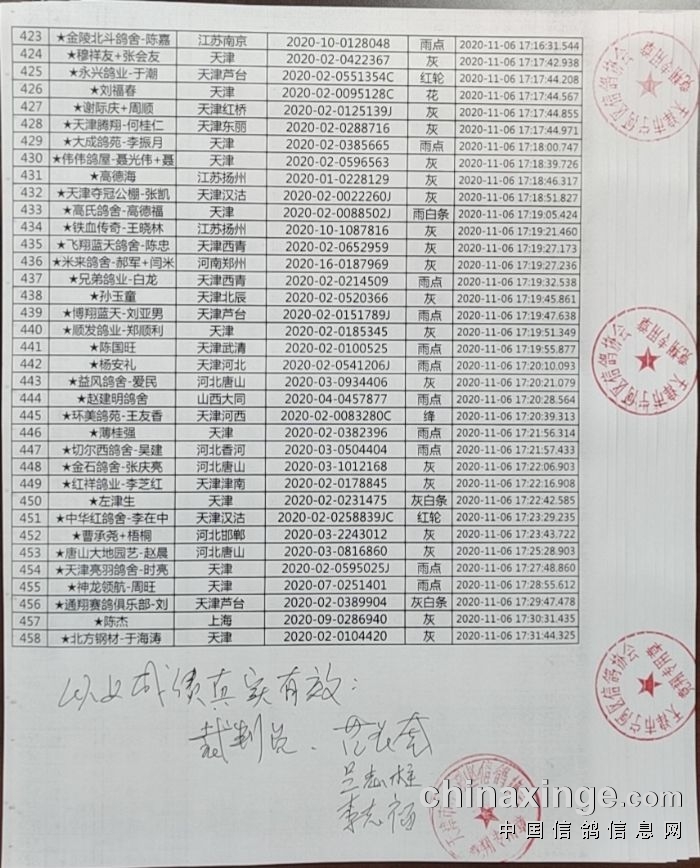 423 ★金陵北斗鸽舍-陈嘉 江苏南京 2020-10-0128048 雨点 2020-11-06 17:16:31.544
424 ★穆祥友+张会友 天津 2020-02-0422367 灰 2020-11-06 17:17:42.938
425 ★永兴鸽业-于潮 天津芦台 2020-02-0551354C 红轮 2020-11-06 17:17:44.208
426 ★刘福春 天津 2020-02-0095128C 花 2020-11-06 17:17:44.567
427 ★谢际庆+周顺 天津红桥 2020-02-0125139J 灰 2020-11-06 17:17:44.855
428 ★天津腾翔-何桂仁 天津东丽 2020-02-0288716 灰 2020-11-06 17:17:44.971
429 ★大成鸽苑-李振月 天津 2020-02-0385665 雨点 2020-11-06 17:18:00.747
430 ★伟伟鸽屋-聂光伟+聂 天津 2020-02-0596563 灰 2020-11-06 17:18:39.726
431 ★高德海 江苏扬州 2020-01-0228129 灰 2020-11-06 17:18:46.317
432 ★天津夺冠公棚-张凯 天津汉沽 2020-02-0022260J 灰 2020-11-06 17:18:51.827
433 ★高氏鸽舍-高德福 天津 2020-02-0088502J 雨白条 2020-11-06 17:19:05.424
434 ★铁血传奇-王晓林 江苏扬州 2020-10-1087816 灰 2020-11-06 17:19:21.460
435 ★飞翔蓝天鸽舍-陈忠 天津西青 2020-02-0652959 灰 2020-11-06 17:19:27.173
436 ★米来鸽舍-郝军+闫米 河南郑州 2020-16-0187969 灰 2020-11-06 17:19:27.236
437 ★兄弟鸽业-白龙 天津西青 2020-02-0214509 雨点 2020-11-06 17:19:32.538
438 ★孙玉童 天津北辰 2020-02-0520366 灰 2020-11-06 17:19:45.861
439 ★博翔蓝天-刘亚男 天津芦台 2020-02-0151789J 雨点 2020-11-06 17:19:47.638
440 ★顺发鸽业-郑顺利 天津 2020-02-0185345 灰 2020-11-06 17:19:51.349
441 ★陈国旺 天津武清 2020-02-0100525 雨点 2020-11-06 17:19:55.877
442 ★杨安礼 天津河北 2020-02-0541206J 雨点 2020-11-06 17:20:10.093
443 ★益风鸽舍-爱民 河北唐山 2020-03-0934406 灰 2020-11-06 17:20:21.079
444 ★赵建明鸽舍 山西大同 2020-04-0457877 雨点 2020-11-06 17:20:28.564
445 ★环美鸽苑-王友香 天津河西 2020-02-0083280C 绛 2020-11-06 17:20:39.313
446 ★薄桂强 天津 2020-02-0382396 雨点 2020-11-06 17:21:56.314
447 ★切尔西鸽舍-吴建 河北香河 2020-03-0504404 雨点 2020-11-06 17:21:57.433
448 ★金石鸽舍-张庆亮 河北唐山 2020-03-1012168 灰 2020-11-06 17:22:06.903
449 ★红祥鸽业-李芝红 天津津南 2020-02-0178845 灰 2020-11-06 17:22:16.908
450 ★左津生 天津 2020-02-0231475 灰白条 2020-11-06 17:22:42.585
451 ★中华红鸽舍-李在中 天津汉沽 2020-02-0258839JC 红轮 2020-11-06 17:23:29.235
452 ★曹承尧+梧桐 河北邯郸 2020-03-2243012 灰 2020-11-06 17:23:43.722
453 ★唐山大地园艺-赵晨 河北唐山 2020-03-0816860 灰 2020-11-06 17:25:28.903
454 ★天津亮羽鸽舍-时亮 天津 2020-02-0595025J 雨点 2020-11-06 17:27:48.860
455 ★神龙领航-周旺 天津 2020-07-0251401 雨点 2020-11-06 17:28:55.612
456 ★通翔赛鸽俱乐部-刘 天津芦台 2020-02-0389904 灰白条 2020-11-06 17:29:47.478
457 ★陈杰 上海 2020-09-0286940 灰 2020-11-06 17:30:31.435
458 ★北方钢材-于海涛 天津 2020-02-0104420 灰 2020-11-06 17:31:44.325
以上成绩真实有效：
裁判员
李志福
天津市宁河区信鸽协会
竞翔专用章
天津市宁河区信鸽协会
竞翔专用章
天津市宁河区信鸽协会
竞翔专用章
chinaxinge.com
中国信鸽信息网